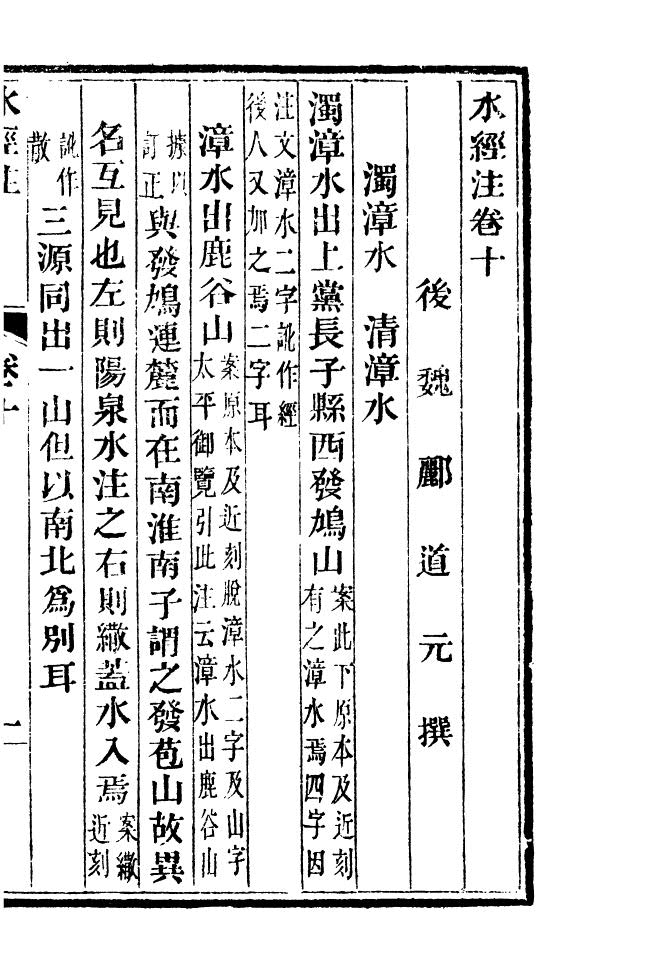 水經注卷十
後魏酈道元撰
濁漳水 清漳水
濁漳水出上黨長子縣西發鳩山案此下原本及近刻有之漳水焉四字因
注文漳水二字訛作經後人又加之焉二字耳
漳水出鹿谷山案原本及近刻脫漳水二字及山字太平御覽引此注云漳水出鹿谷山
據以訂正與發鳩連麓而在南淮南子謂之發苞山故異
名互見也左則陽泉水注之右則繖蓋水入焉案繖近刻
訛作散三源同出一山但以南北爲別耳
水經注 卷十 一